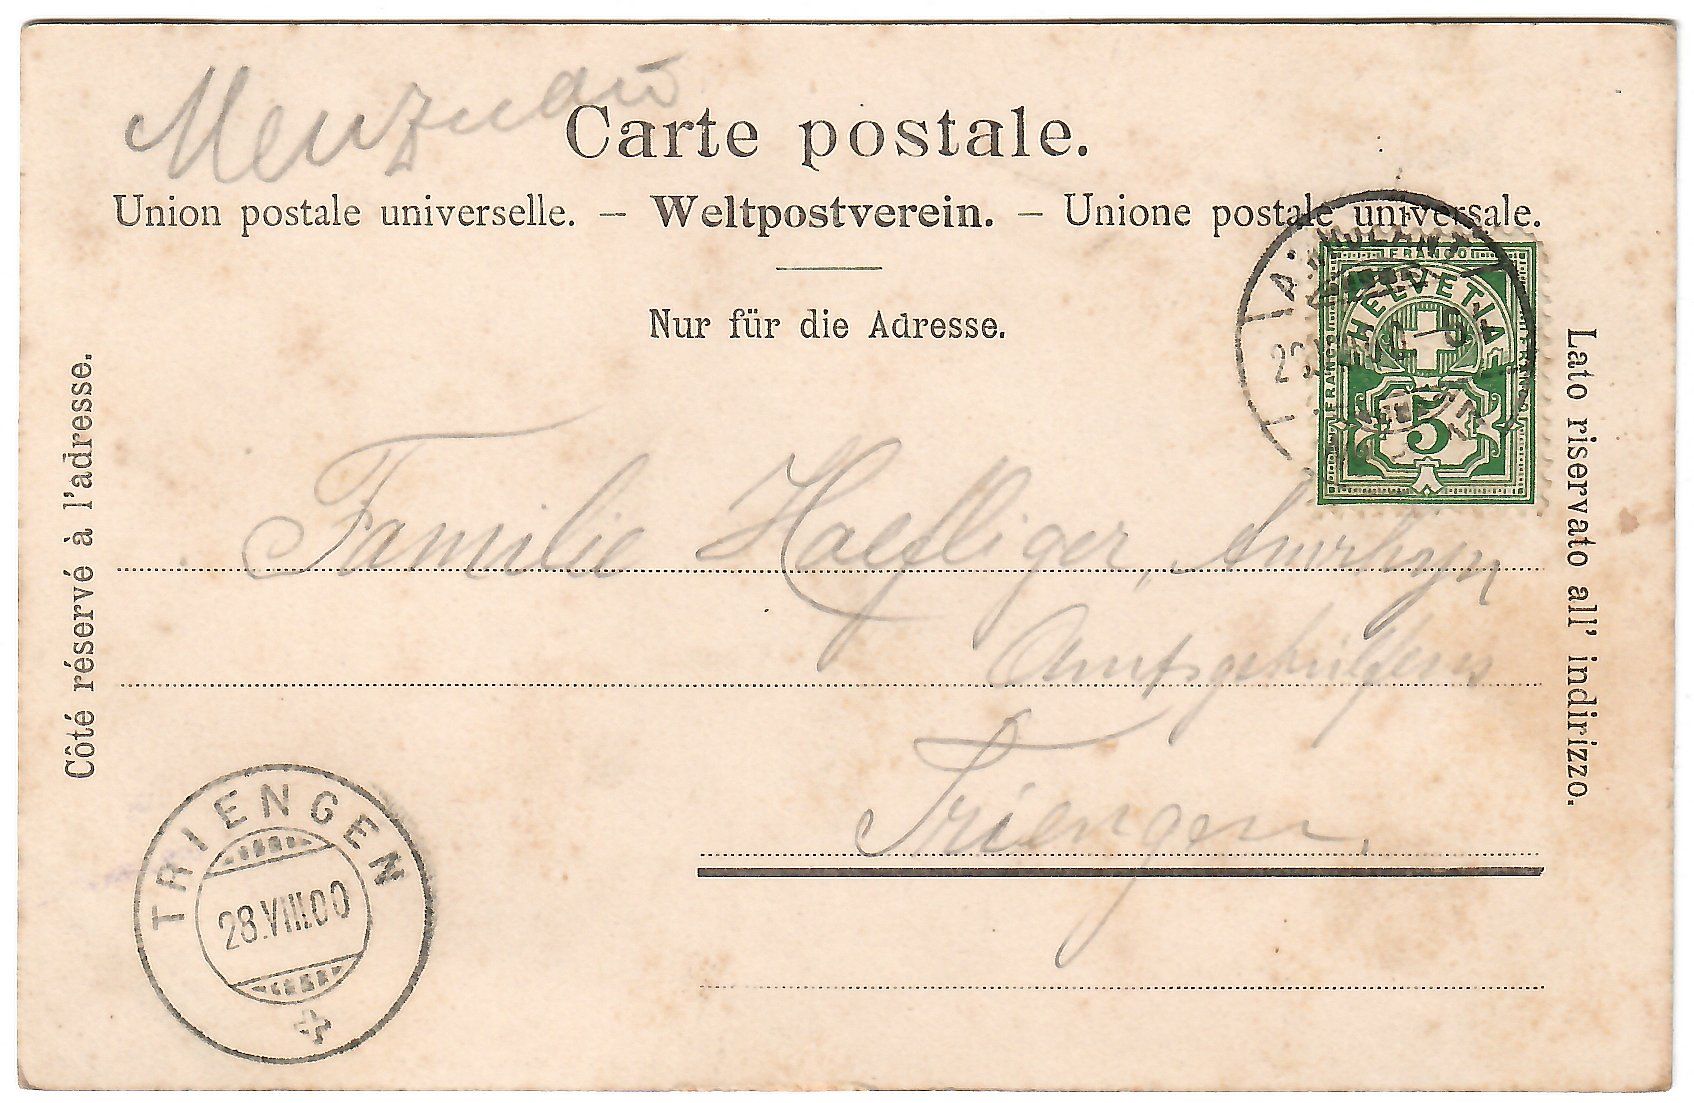 Menznau
Carte postale.
Union postale universelle. – Weltpostverein. – Unione postale universale.
Nur für die Adresse.
Côté réservé à l'adresse.
Lato riservato all' indirizzo.
FRANCO
HELVETIA
FRANCO
FRANCO
5
Familie Haefliger, Amrhyn
Amtsgehülfens
Triengen.
TRIENGEN
28.VIII.00